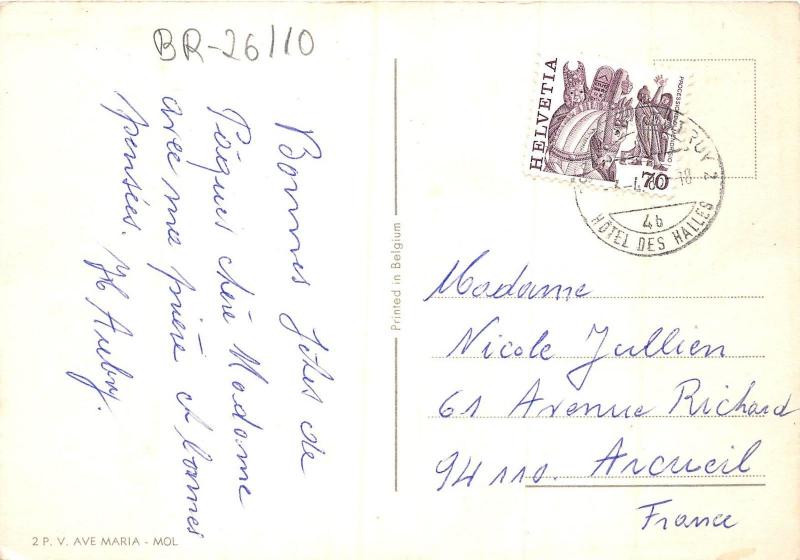 BR-26/10
Bonnes fêtes de
Pâques chère Madame
avec ma prière et bonnes
pensées. JH Aubry.
2 P. V. AVE MARIA - MOL
Printed in Belgium
HELVETIA
70
RUY 2
18
46
HÔTEL DES HALLES
Madame
Nicole Jullien
61 Avenue Richard
94110. Arcueil
France